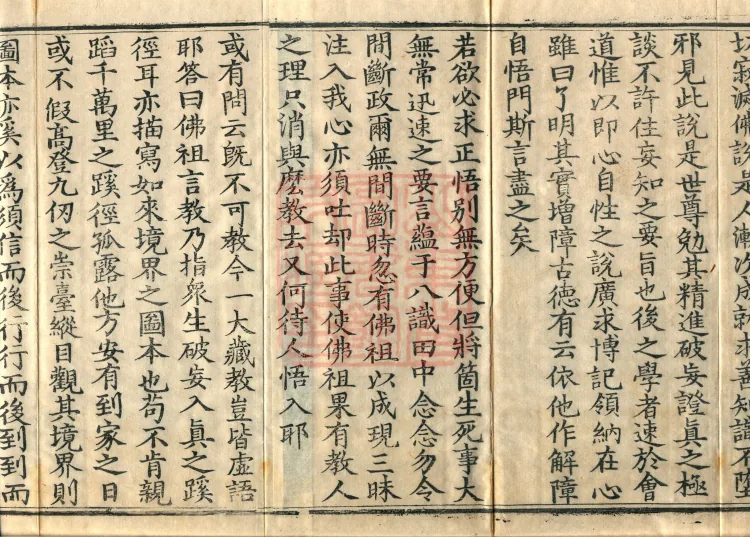 切寂滅佛說是人漸次成就求善知識不墮
邪見此說是世尊勉其精進破妄證真之極
談不許住妄知之要旨也後之學者速於會
道惟以即心自性之說廣求博記領納在心
雖曰了明其實增障古德有云依他作解障
自悟門斯言盡之矣
若欲必求正悟別無方便但將箇生死事大
無常迅速之要言蘊于八識田中念念勿令
間斷政爾無間斷時忽有佛祖以成現三昧
注入我心亦須吐却此事使佛祖果有教人
之理只消與麼教去又何待人悟入耶
或有問云旣不可教今一大藏教豈皆虛語
耶答曰佛祖言教乃指衆生破妄入眞之蹊
徑耳亦描寫如來境界之圖本也苟不肯親
蹈千萬里之蹊徑孤露他方安有到家之日
或不假高登九仞之崇臺縱目觀其境界則
圖本亦奚以爲須信而後行行而後到到而